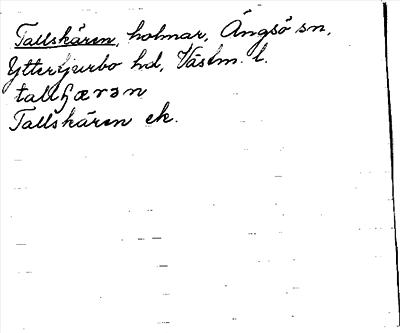 Tallskären, holmar, Ängsö sn,
Yttertjurbo hd, Västm. l.
tallʃærən
Tallskären ek.